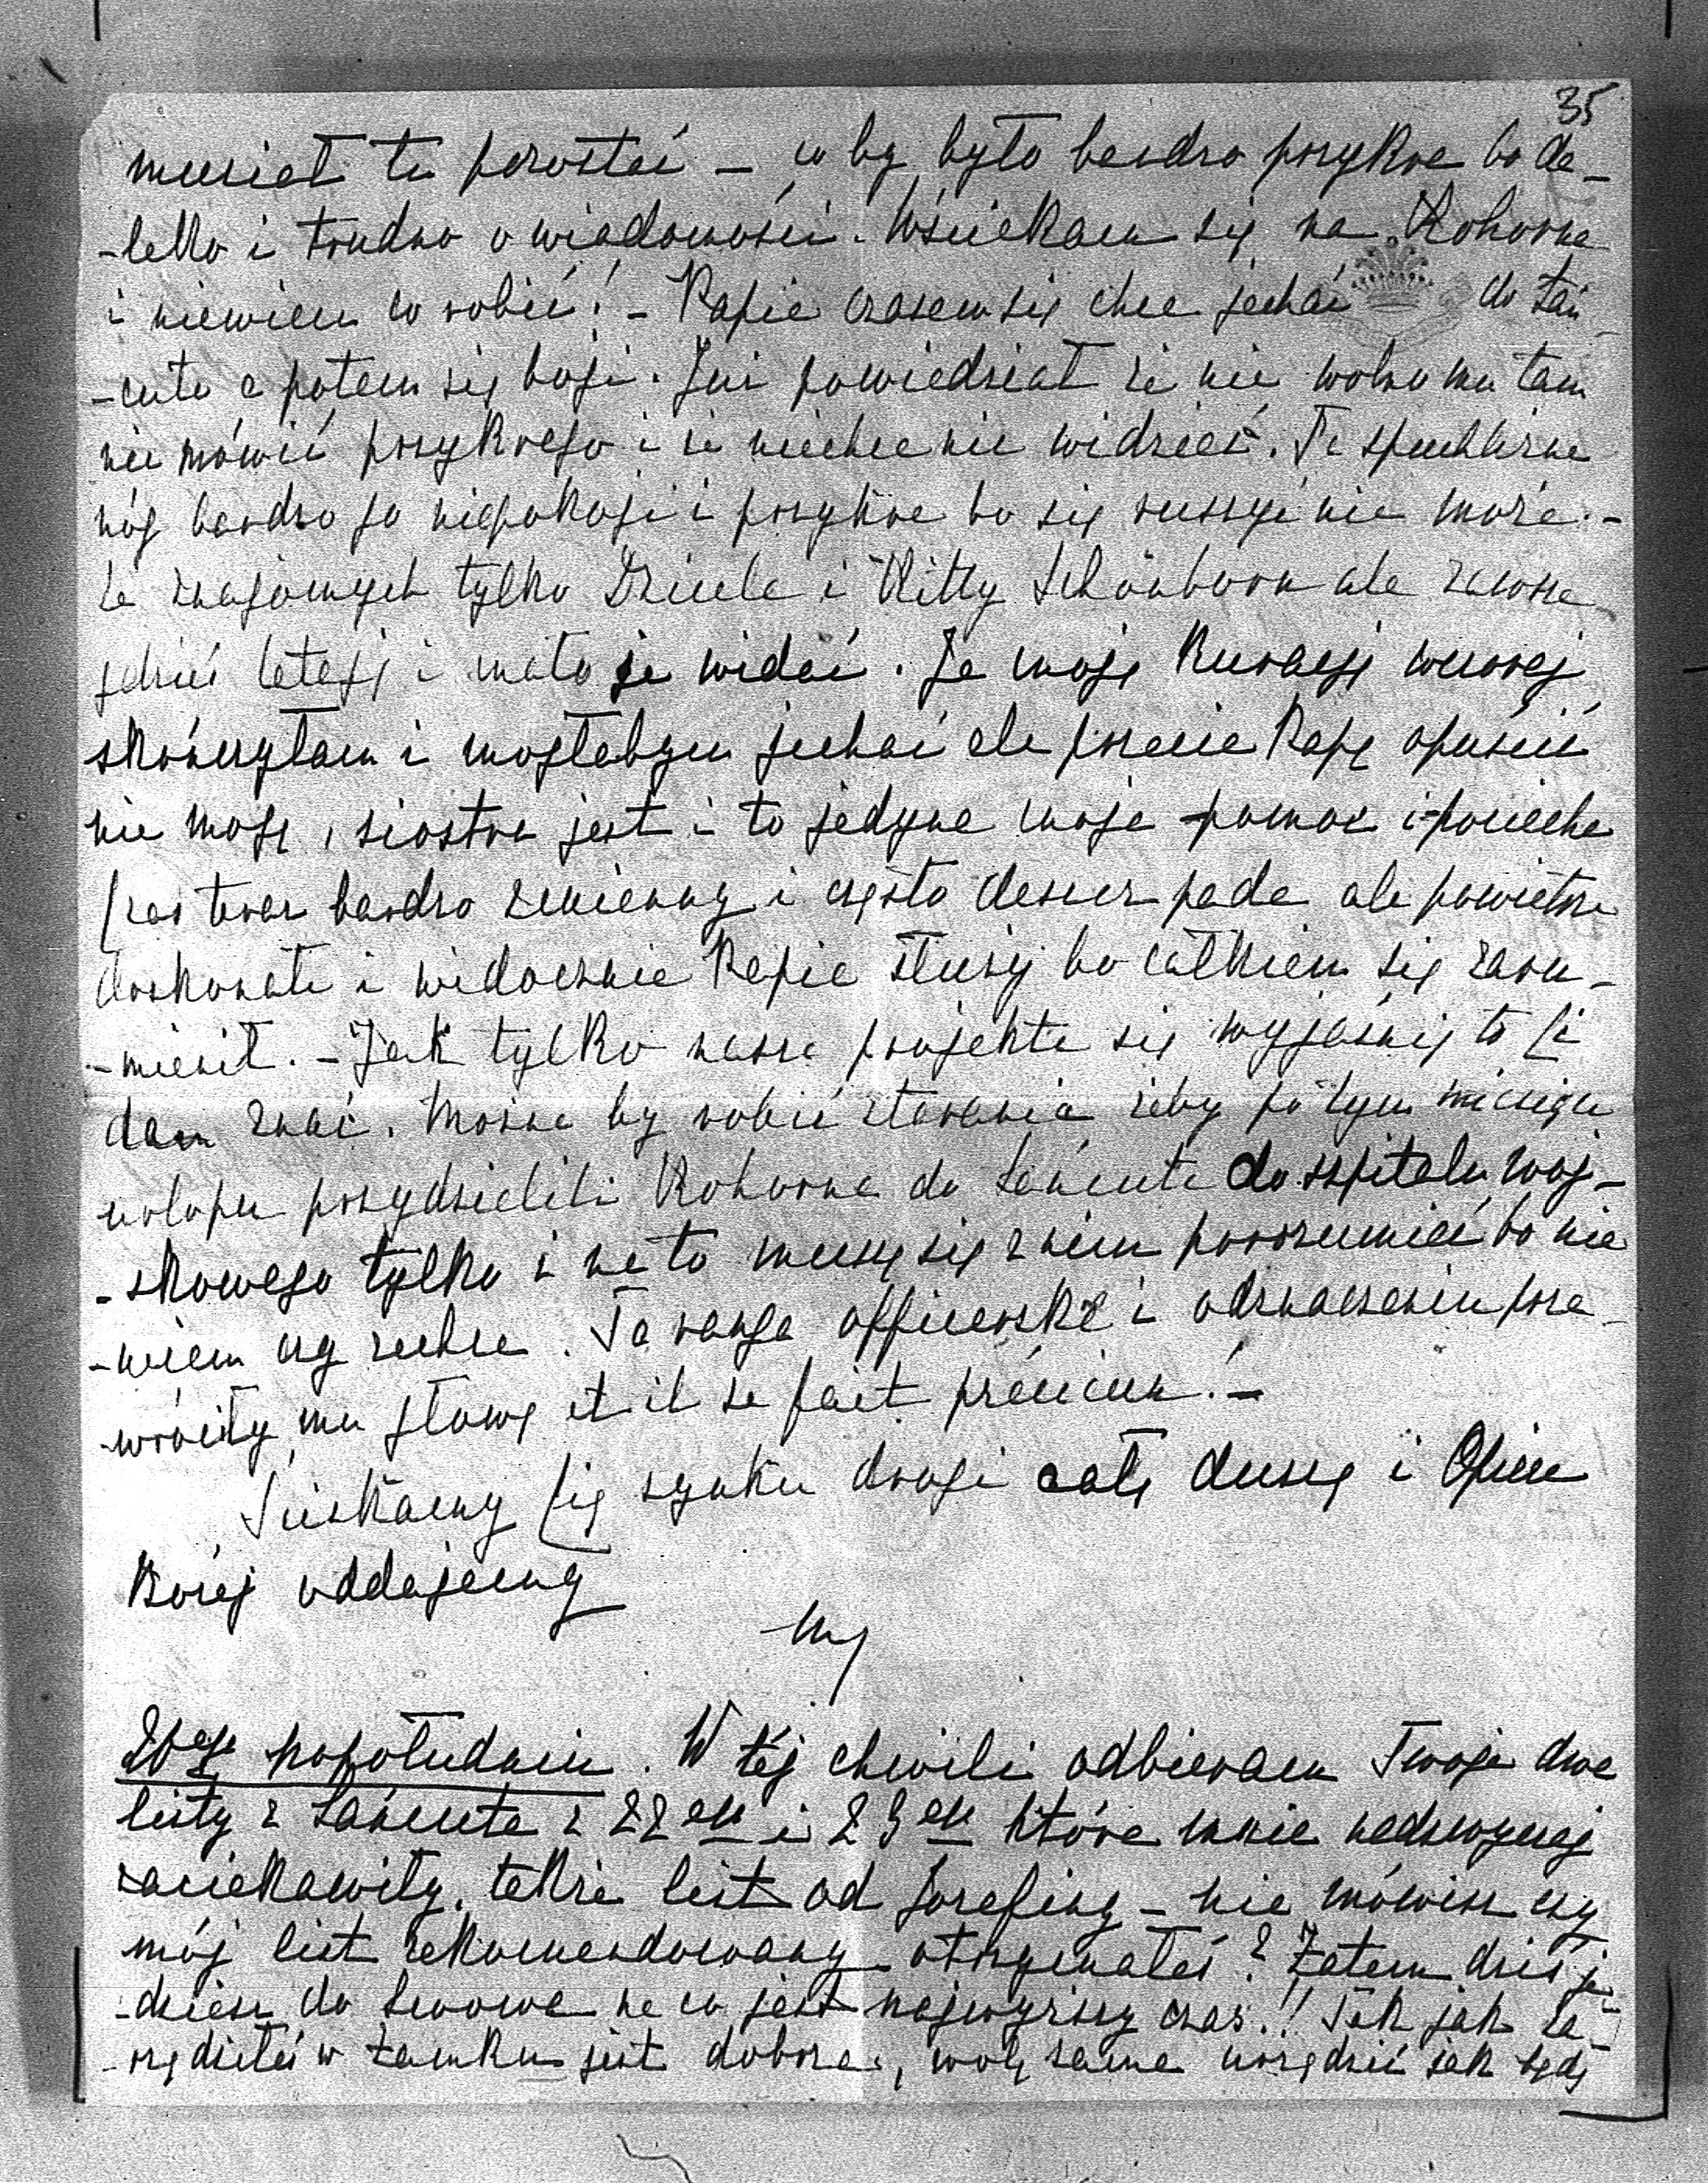 35
musiał tu pozostać – co by było bardzo przykre bo da-
-leko i trudno o wiadomości. Wściekam się na Kohorna
i niewiem co robić! – Papie czasem się chce jechać do Łań-
-cuta a potem się boji. Jui powiedział że nie wolno mu tam
nic mówić przykrego i że niechce nic widzieć. Ta spuchlizna
nóg bardzo go niepokoji i przykre bo się ruszyć nie może. –
Ze znajomych tylko Dziula i Kitty Schönborn ale zawsze
gdzieś latają i mało je widać. Ja moję kuracyę wczoraj
skończyłam i mogłabym jechać ale przecie Papę opuścić
nie mogę, siostra jest i to jedyna moja pomoc i pociecha
Czas teraz bardzo zmienny i często deszcz pada ale powietrze
doskonałe i widocznie Papie służy bo całkiem się zaru-
-mienił. – Jak tylko nasze projekta się wyjaśnią to Ci
dam znać. Można by robić starania żeby po tym miesiącu
urlopu przydzielili Kohorna do Łańcuta do szpitalu woj-
-skowego tylko i na to muszę się z nim porozumieć bo nie
-wiem czy zechce. Ta ranga officerska i odznaczenia prze-
-wróciły mu głowę et il se fait précieux. –
Ściskamy Cię synku drogi całą duszą i Opiece
Bożej oddajemy
My
26go popołudniu. W téj chwili odbieram Twoje dwa
listy z Łańcuta z 22em i 23em które mnie nadzwyczaj
zaciekawiły, także list od Józefiny – nie mówisz czy
mój list rekomendowany otrzymałeś? Zatem dziś je-
-dziesz do Lwowa na co jest najwyższy czas!! Tak jak za-
-rządziłeś w zamku jest dobrze, wolę sama urządzić jak będę